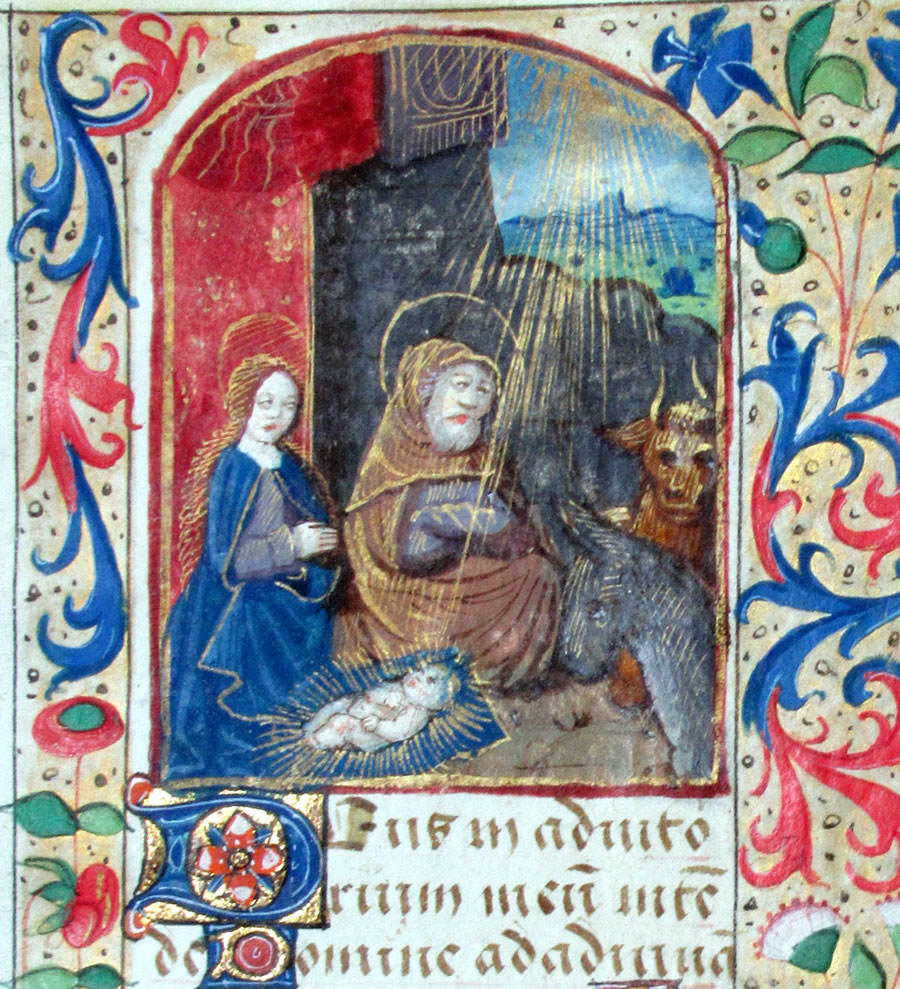 DEus in adiuto
rium meū intē
de Domine adadiuuā